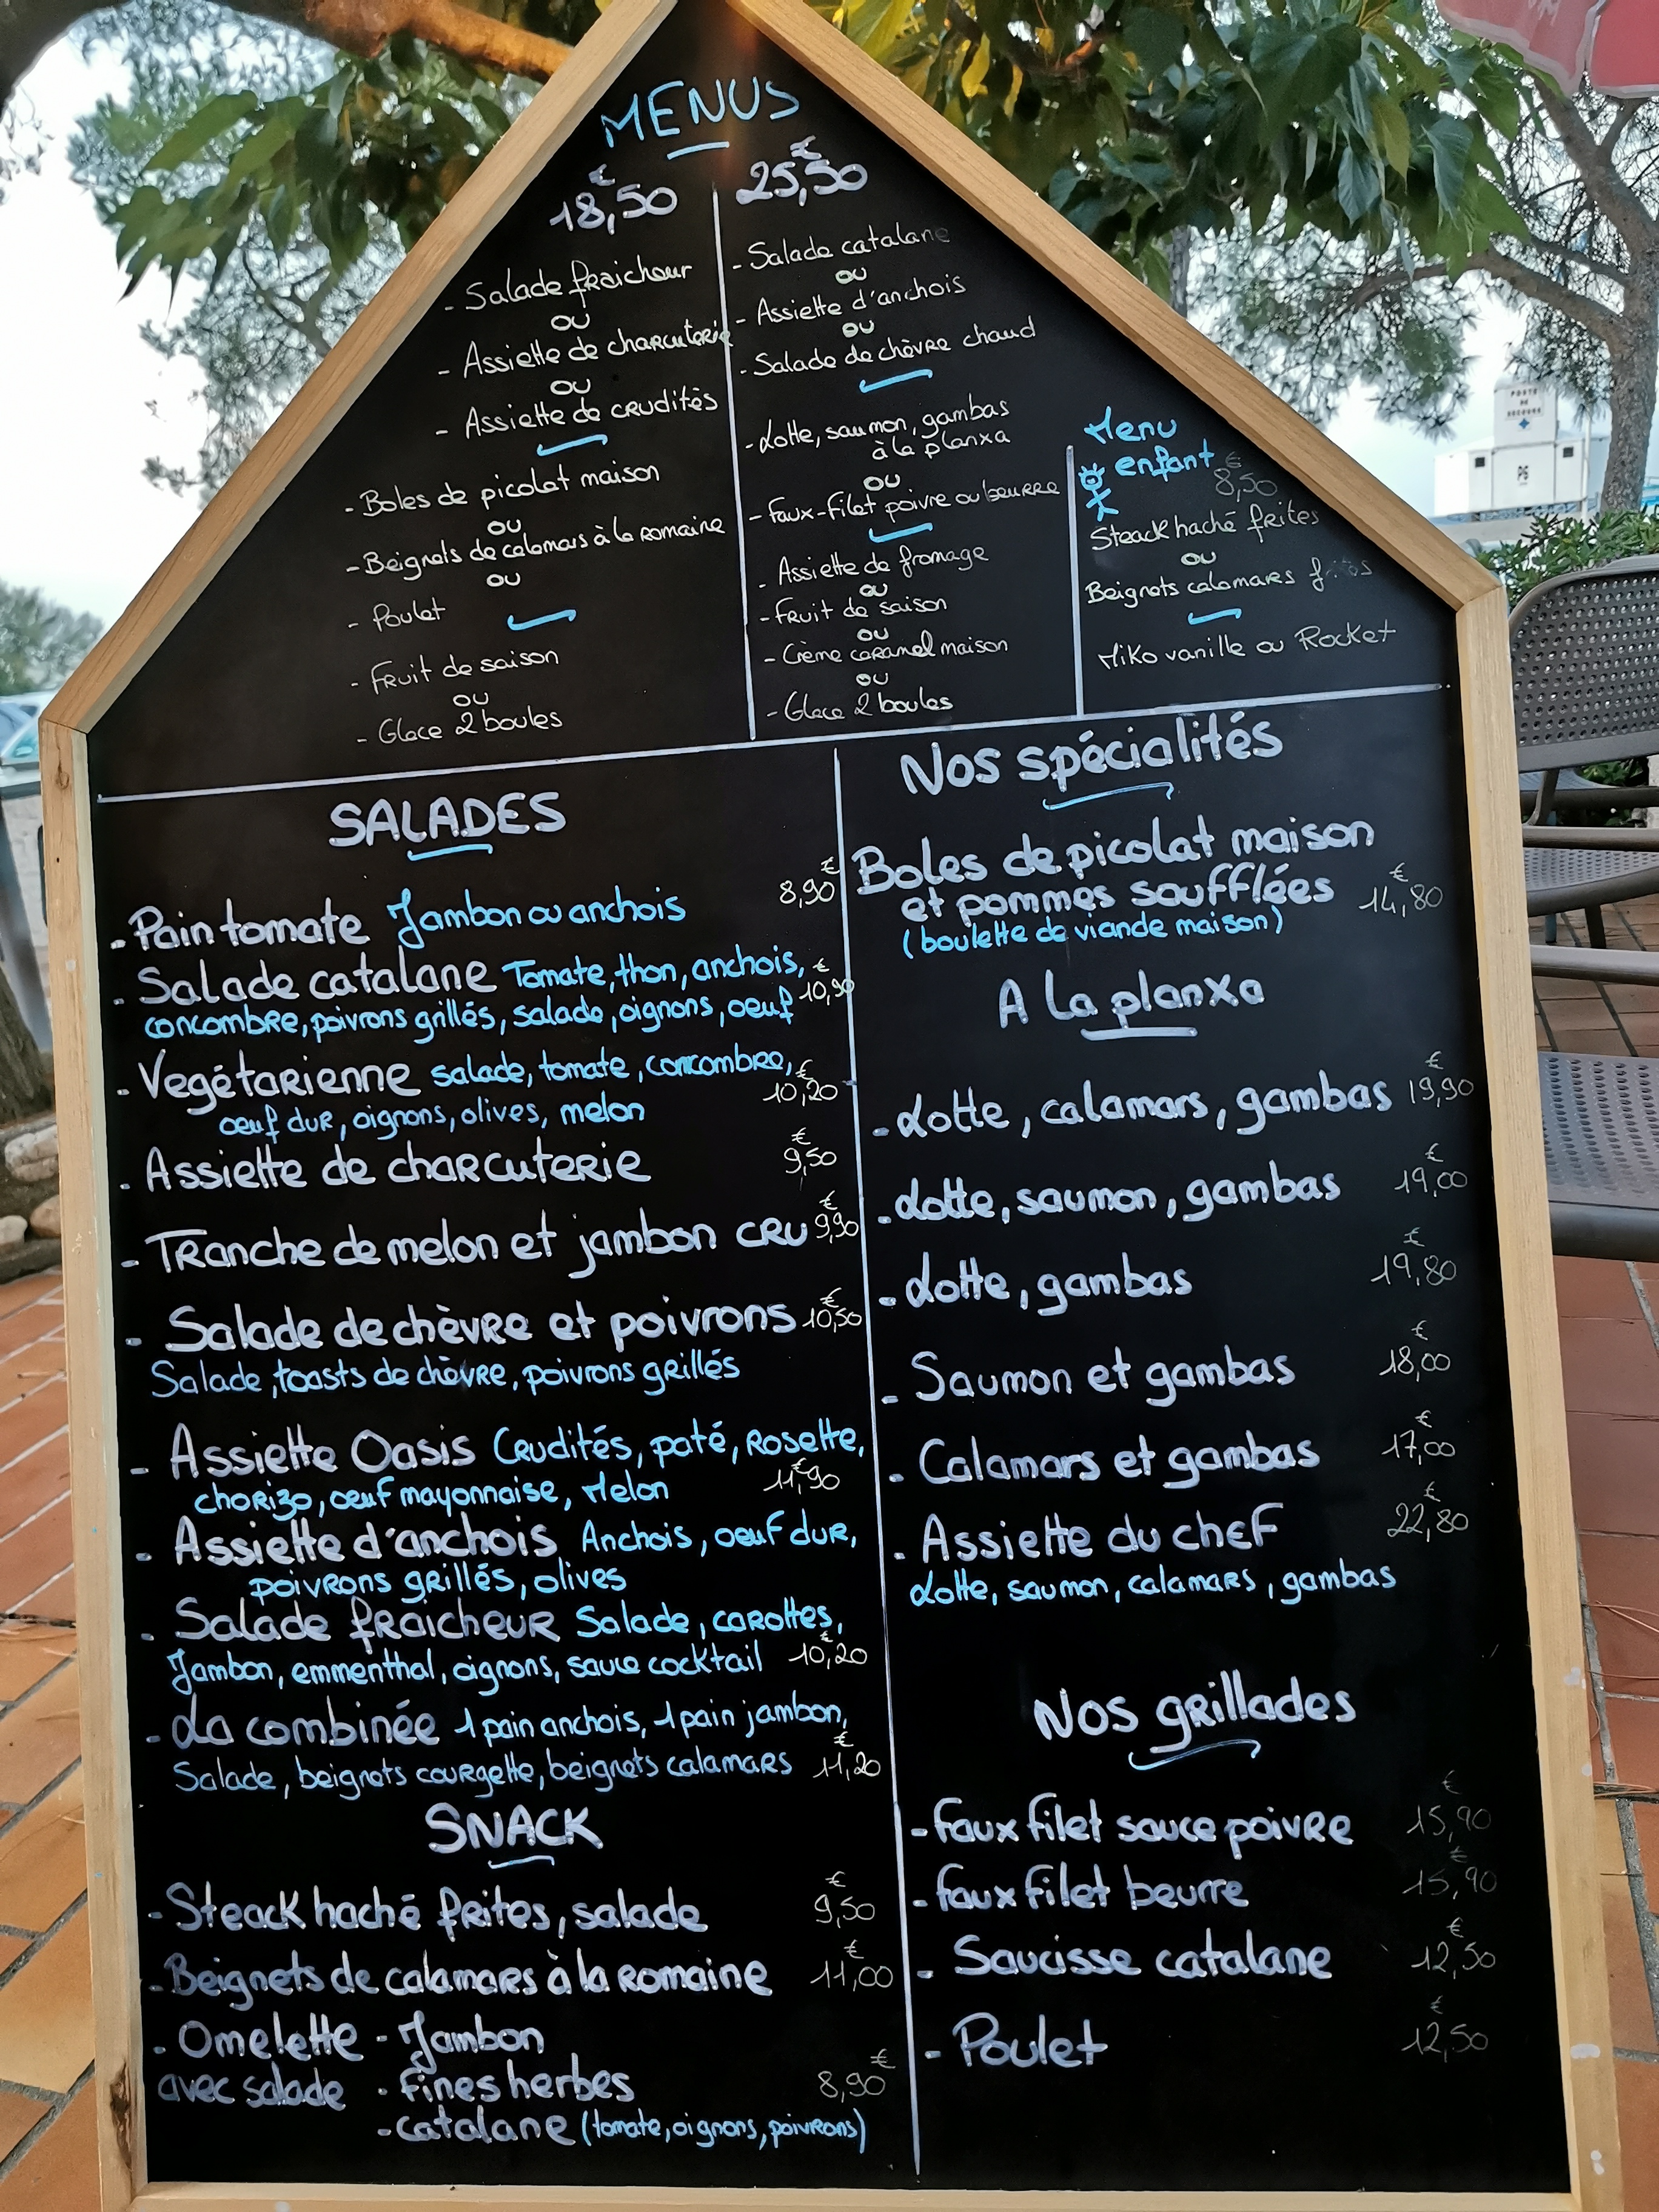 MENUS
18,50 €
- Salade fraicheur
ou
- Assiette de charcuterie
ou
- Assiette de crudités
- Boles de picolat maison
ou
- Beignets de calamars à la romaine
ou
- Poulet
- Fruit de saison
ou
- Glace 2 boules
25,50 €
- Salade catalane
ou
- Assiette d'anchois
ou
- Salade de chèvre chaud
- Lotte, saumon, gambas
à la planxa
ou
- Faux-filet poivre ou beurre
- Assiette de fromage
ou
- Fruit de saison
ou
- Crème caramel maison
ou
- Glace 2 boules
Menu
enfant
8,50 €
Steack haché frites
ou
Beignets calamars frites
Miko vanille ou Rocket
SALADES
- Pain tomate Jambon ou anchois 8,90 €
- Salade catalane Tomate, thon, anchois,
concombre, poivrons grillés, salade, oignons, oeuf 10,90 €
- Vegétarienne salade, tomate, concombre,
oeuf dur, oignons, olives, melon 10,20 €
- Assiette de charcuterie 9,50 €
- Tranche de melon et jambon cru 9,90 €
- Salade de chèvre et poivrons 10,50 €
Salade, toasts de chèvre, poivrons grillés
- Assiette Oasis Crudités, paté, Rosette,
chorizo, oeuf mayonnaise, Melon 11,90 €
- Assiette d'anchois Anchois, oeuf dur,
poivrons grillés, olives
- Salade fraicheur Salade, carottes,
Jambon, emmenthal, oignons, sauce cocktail 10,20 €
- La combinée 1 pain anchois, 1 pain jambon,
Salade, beignets courgette, beignets calamars 11,20 €
SNACK
- Steack haché frites, salade 9,50 €
- Beignets de calamars à la romaine 11,00 €
- Omelette - Jambon
avec salade - fines herbes 8,90 €
- catalane (tomate, oignons, poivrons)
Nos spécialités
Boles de picolat maison
et pommes soufflées 14,80 €
(boulette de viande maison)
A la planxa
- Lotte, calamars, gambas 19,90 €
- Lotte, saumon, gambas 19,00 €
- Lotte, gambas 19,80 €
- Saumon et gambas 18,00 €
- Calamars et gambas 17,00 €
- Assiette du chef 22,80 €
Lotte, saumon, calamars, gambas
Nos grillades
- faux filet sauce poivre 15,90 €
- faux filet beurre 15,90 €
- Saucisse catalane 12,50 €
- Poulet 12,50 €
POSTE
DE
SECOURS